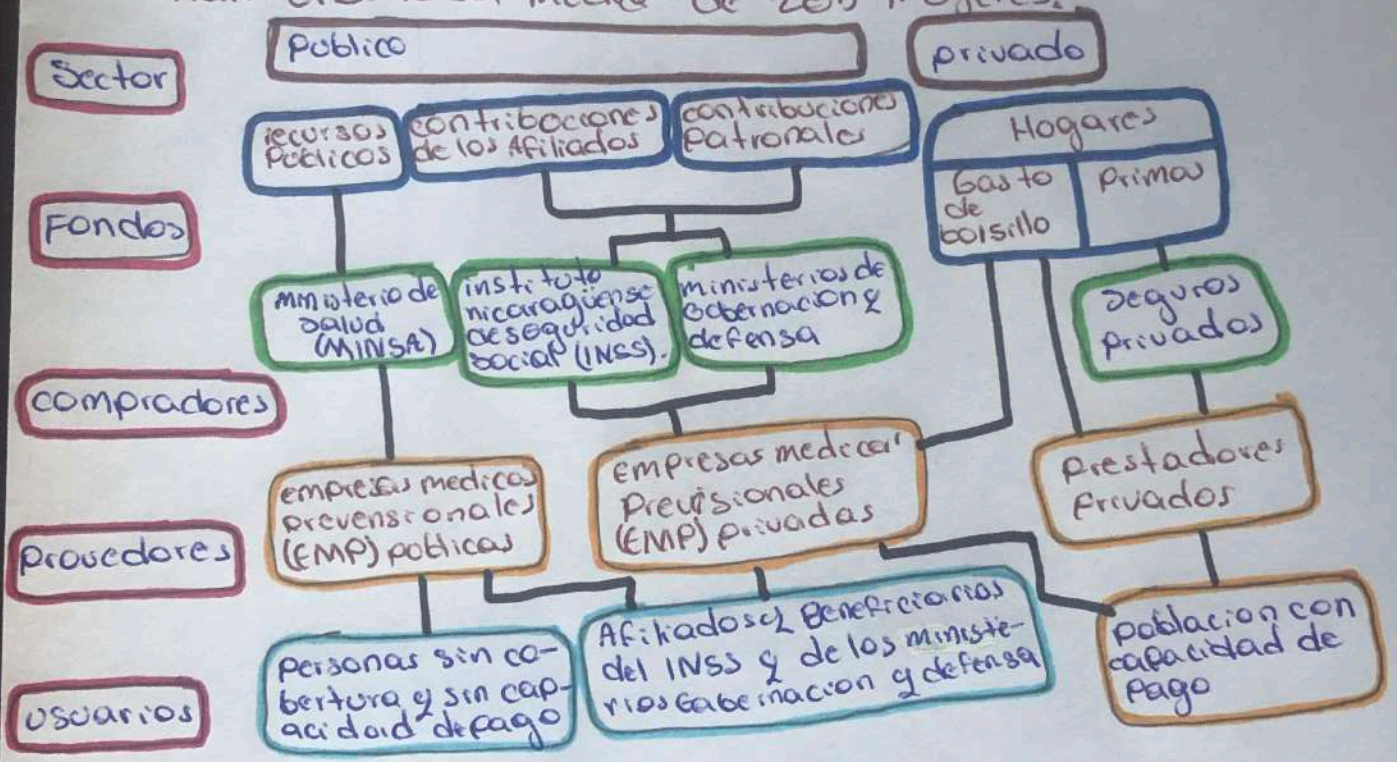 Sector
Poblico
privado
Fondos
recursos
Poblicos
contribociones
de los Afiliados
contribuciones
Patronales
Hogares
Gasto
de
bolsillo
Primas
compradores
ministerio de
salud
(MINSA)
instituto
nicaragüense
de seguridad
social (INSS).
ministerios de
Gobernacion y
defensa
seguros
privados
Provedores
empresas medicas
prevensionales
(EMP) poblicas
empresas medicas
Previsionales
(EMP) privadas
prestadores
Privados
usuarios
personas sin co-
bertura y sin cap-
acidad de pago
Afiliados y Beneficiarios
del INSS y de los ministe-
rios Gabernacion y defensa
poblacion con
capacidad de
Pago